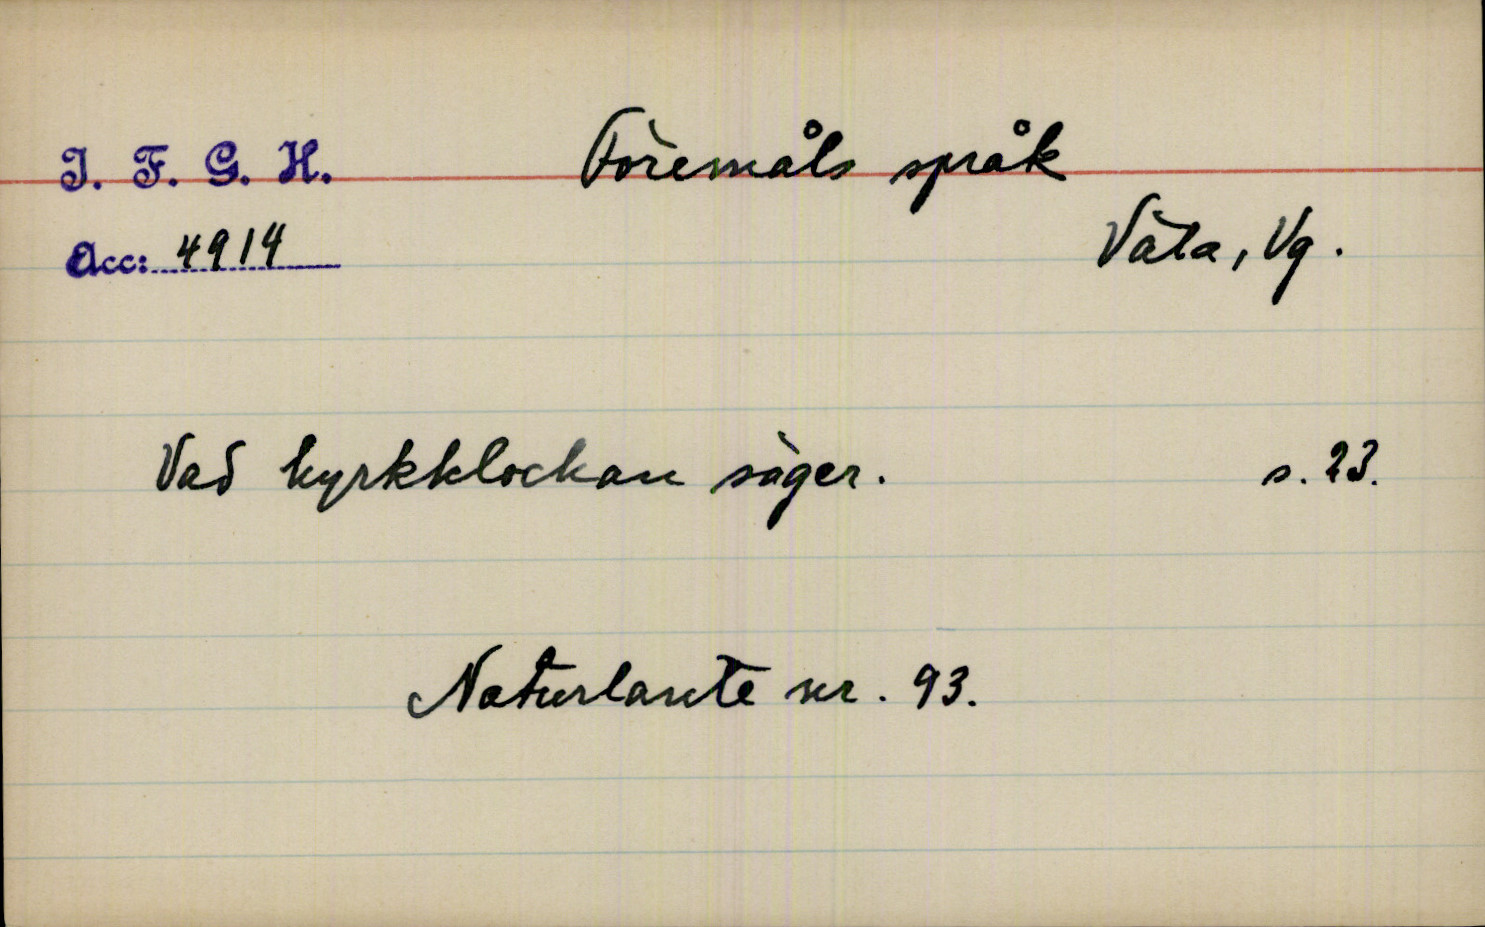 I. F. G. H.
Föremåls språk
Acc: 4914
Väla, Vg.
Vad kyrkklockan säger. s. 23.
Naturlaute nr. 93.